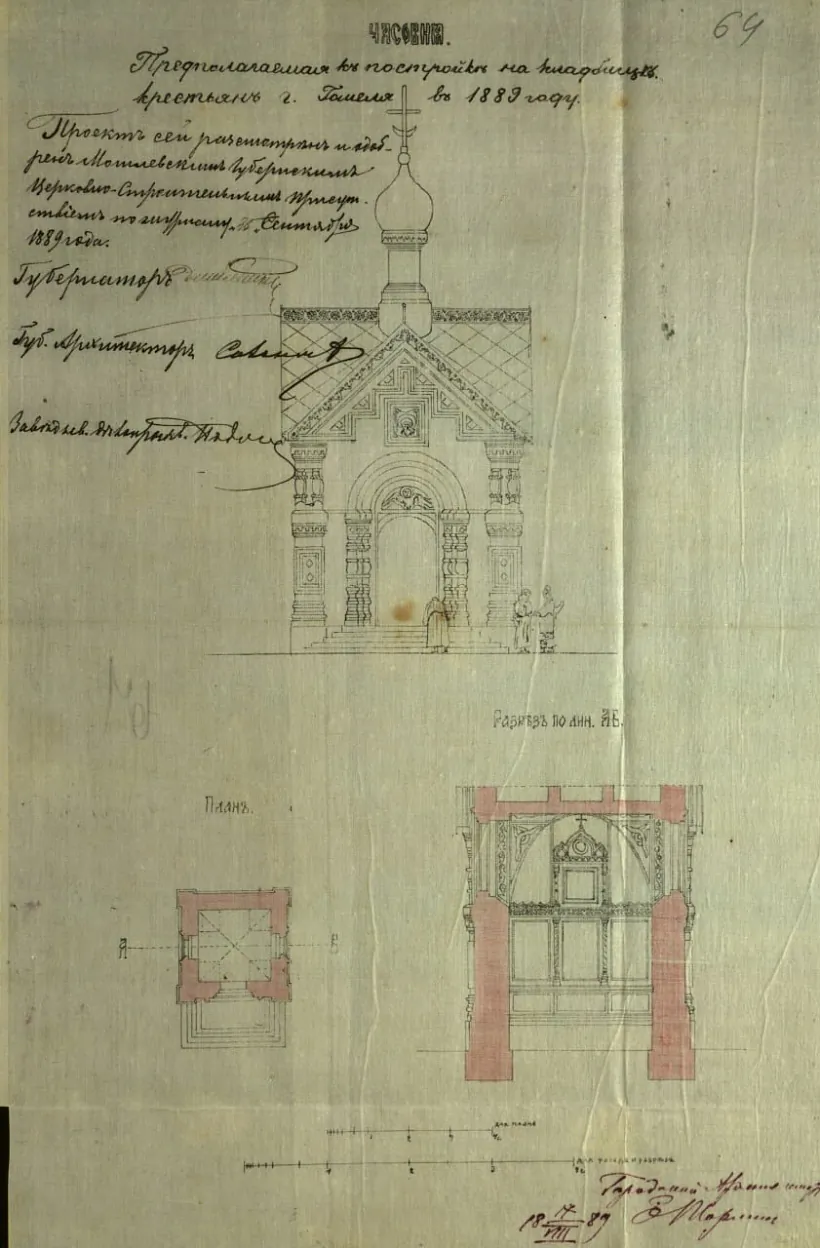 64
ЧАСОВНЯ.
Предполагаемая къ постройкѣ на кладбищѣ
крестьянъ г. Гомеля въ 1889 году.
Проектъ сей разсмотрѣнъ и одоб-
ренъ Могилевскимъ Губернскимъ
Церковно-Строительнымъ Присут-
ствіемъ по журналу Сентября
1889 года.
Губернаторъ
Губ. Архитекторъ
РАЗРѢЗЪ ПО ЛИН. АБ.
ПЛАНЪ.
А Б
для плана
1 2 3
для фасада и разрѣза
1 2 3
Городской Архитекторъ
18 17/VIII 89